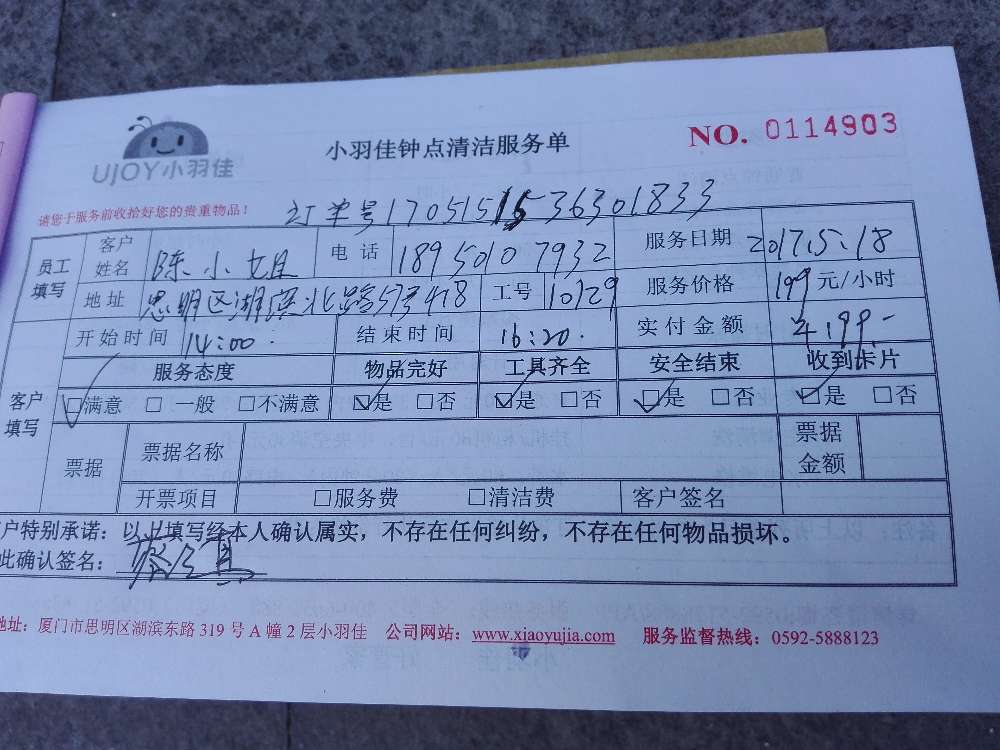 UJOY小羽佳
小羽佳钟点清洁服务单
NO. 0114903
请您于服务前收拾好您的贵重物品！
订单号170515 36301833
员工填写 客户姓名 陈小姐 电话 18950107932 服务日期 2017.5.18
地址 思明区湖滨北路57号478 工号 10129 服务价格 199元/小时
开始时间 14:00. 结束时间 16:20. 实付金额 ¥199-
客户填写 服务态度 物品完好 工具齐全 安全结束 收到卡片
☑满意 □一般 □不满意 ☑是 □否 ☑是 □否 ☑是 □否 ☑是 □否
票据 票据名称 票据金额
开票项目 □服务费 □清洁费 客户签名
客户特别承诺：以上填写经本人确认属实，不存在任何纠纷，不存在任何物品损坏。
此确认签名：
地址：厦门市思明区湖滨东路 319 号 A 幢 2 层小羽佳 公司网站：www.xiaoyujia.com 服务监督热线：0592-5888123